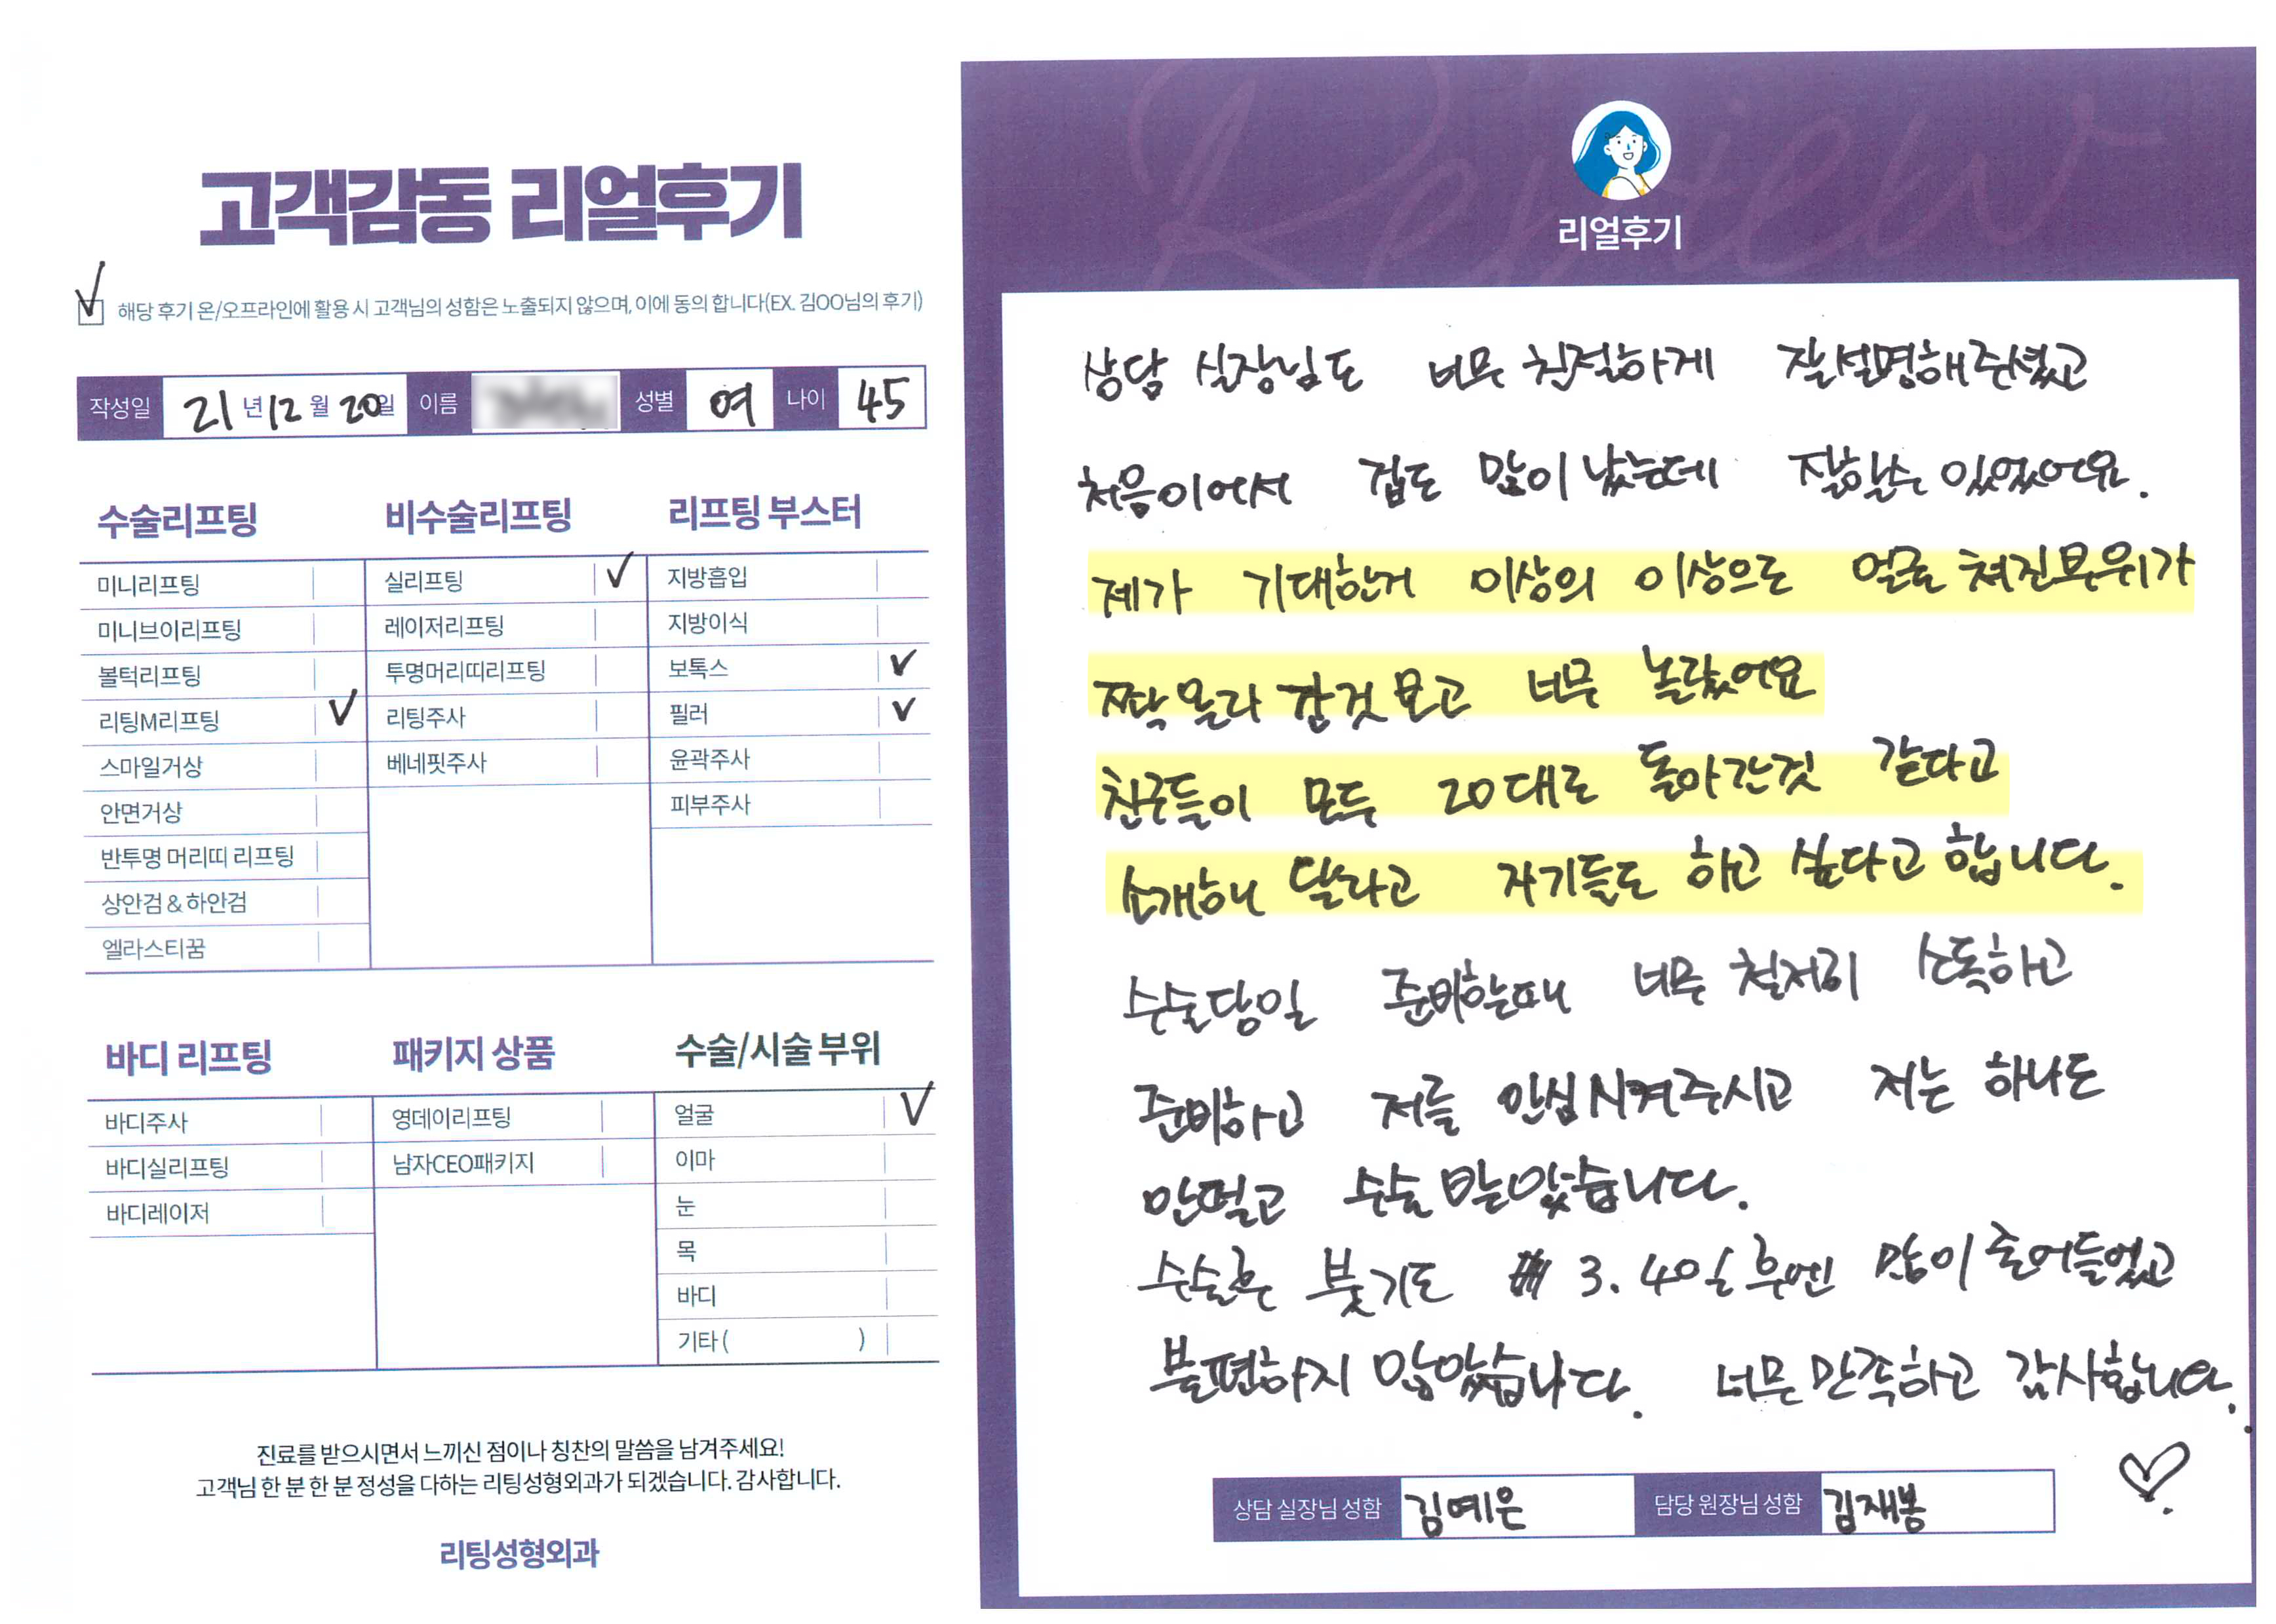 고객감동 리얼후기
✓ 해당 후기 온/오프라인에 활용 시 고객님의 성함은 노출되지 않으며, 이에 동의 합니다(EX. 김OO님의 후기)
작성일 21년 12월 20일 이름 성별 여 나이 45
수술리프팅
미니리프팅
미니브이리프팅
볼턱리프팅
리팅M리프팅 ✓
스마일거상
안면거상
반투명 머리띠 리프팅
상안검 & 하안검
엘라스티꿈
비수술리프팅
실리프팅 ✓
레이저리프팅
투명머리띠리프팅
리팅주사
베네핏주사
리프팅 부스터
지방흡입
지방이식
보톡스 ✓
필러 ✓
윤곽주사
피부주사
바디 리프팅
바디주사
바디실리프팅
바디레이저
패키지 상품
영데이리프팅
남자CEO패키지
수술/시술 부위
얼굴 ✓
이마
눈
목
바디
기타 ( )
진료를 받으시면서 느끼신 점이나 칭찬의 말씀을 남겨주세요!
고객님 한 분 한 분 정성을 다하는 리팅성형외과가 되겠습니다. 감사합니다.
리팅성형외과
Review
리얼후기
상담 실장님도 너무 친절하게 잘설명해주셨고
처음이어서 겁도 많이 났는데 잘할수 있었어요.
제가 기대한거 이상의 이상으로 얼굴 쳐진부위가
짝 올라 간것 보고 너무 놀랐어요
친구들이 모두 20대로 돌아간것 같다고
소개해 달라고 자기들도 하고 싶다고 합니다.
수술당일 준비할때 너무 철저히 소독하고
준비하고 저를 안심시켜주시고 저는 하나도
안떨고 수술 받았습니다.
수술후 붓기도 3.4일 후엔 많이 줄어들었고
불편하지 않았습니다. 너무 만족하고 감사합니다.
상담 실장님 성함 김예은 담당 원장님 성함 김재봉